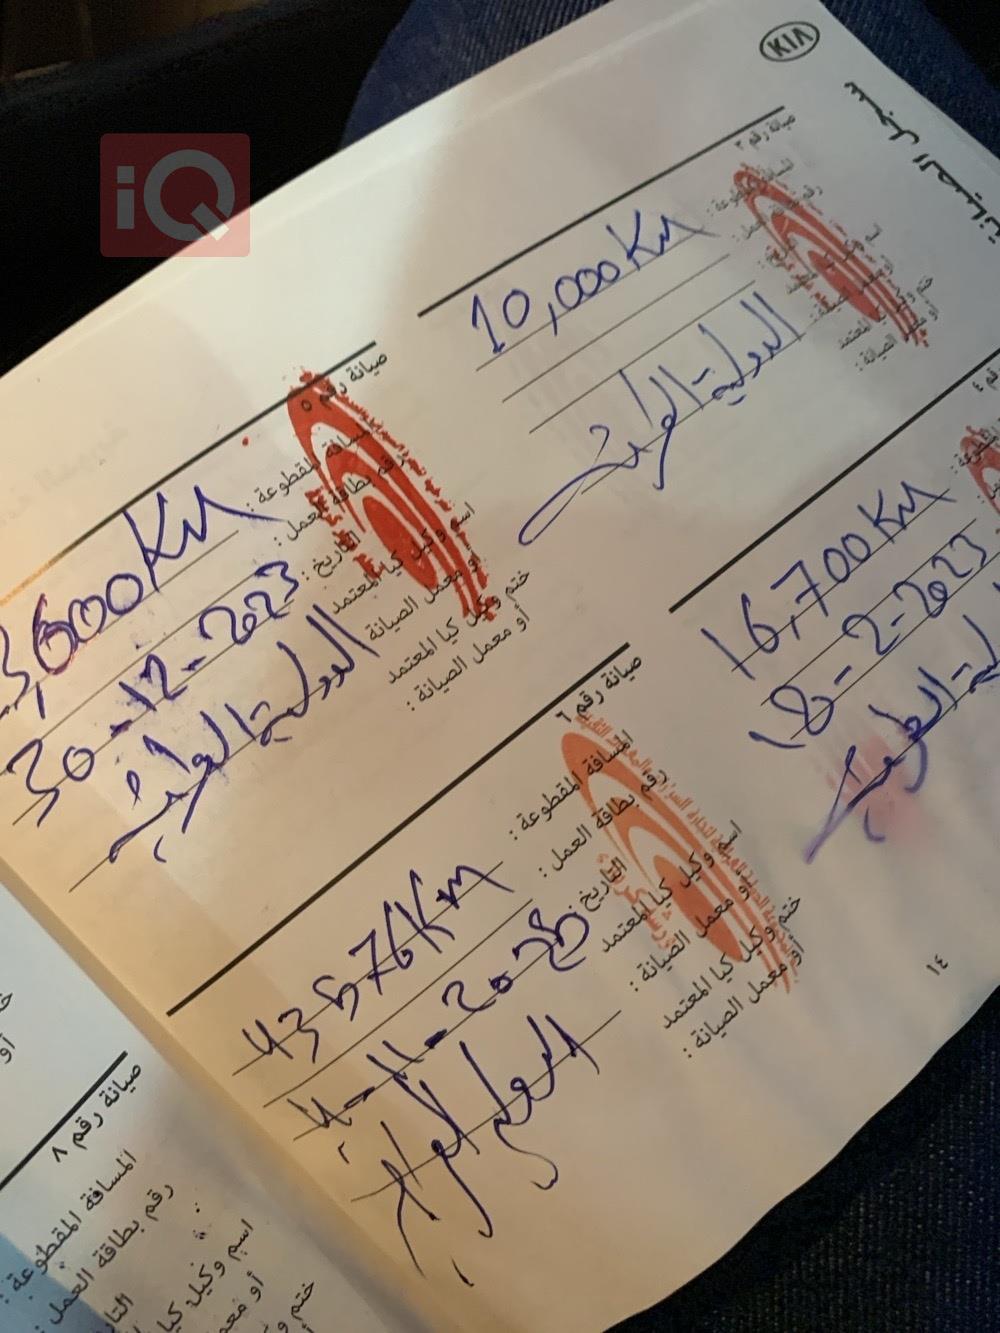 iQ
KIA
سجل الصيانة
صيانة رقم ٣
المسافة المقطوعة :
10,000Km
رقم بطاقة العمل :
التاريخ :
اسم وكيل كيا المعتمد
أو معمل الصيانة :
الدولية العراقية
ختم وكيل كيا المعتمد
أو معمل الصيانة :
رقم ٤
16,700Km
18-2-2023
صيانة رقم ٥
المسافة المقطوعة :
3,600Km
رقم بطاقة العمل :
التاريخ :
30-12-2023
اسم وكيل كيا المعتمد
أو معمل الصيانة
الدولية العراقية
ختم وكيل كيا المعتمد
أو معمل الصيانة :
صيانة رقم ٦
المسافة المقطوعة :
رقم بطاقة العمل :
التاريخ :
اسم وكيل كيا المعتمد
أو معمل الصيانة :
ختم وكيل كيا المعتمد
أو معمل الصيانة :
١٤
صيانة رقم ٨
المسافة المقطوعة :
رقم بطاقة العمل :
اسم وكيل كيا